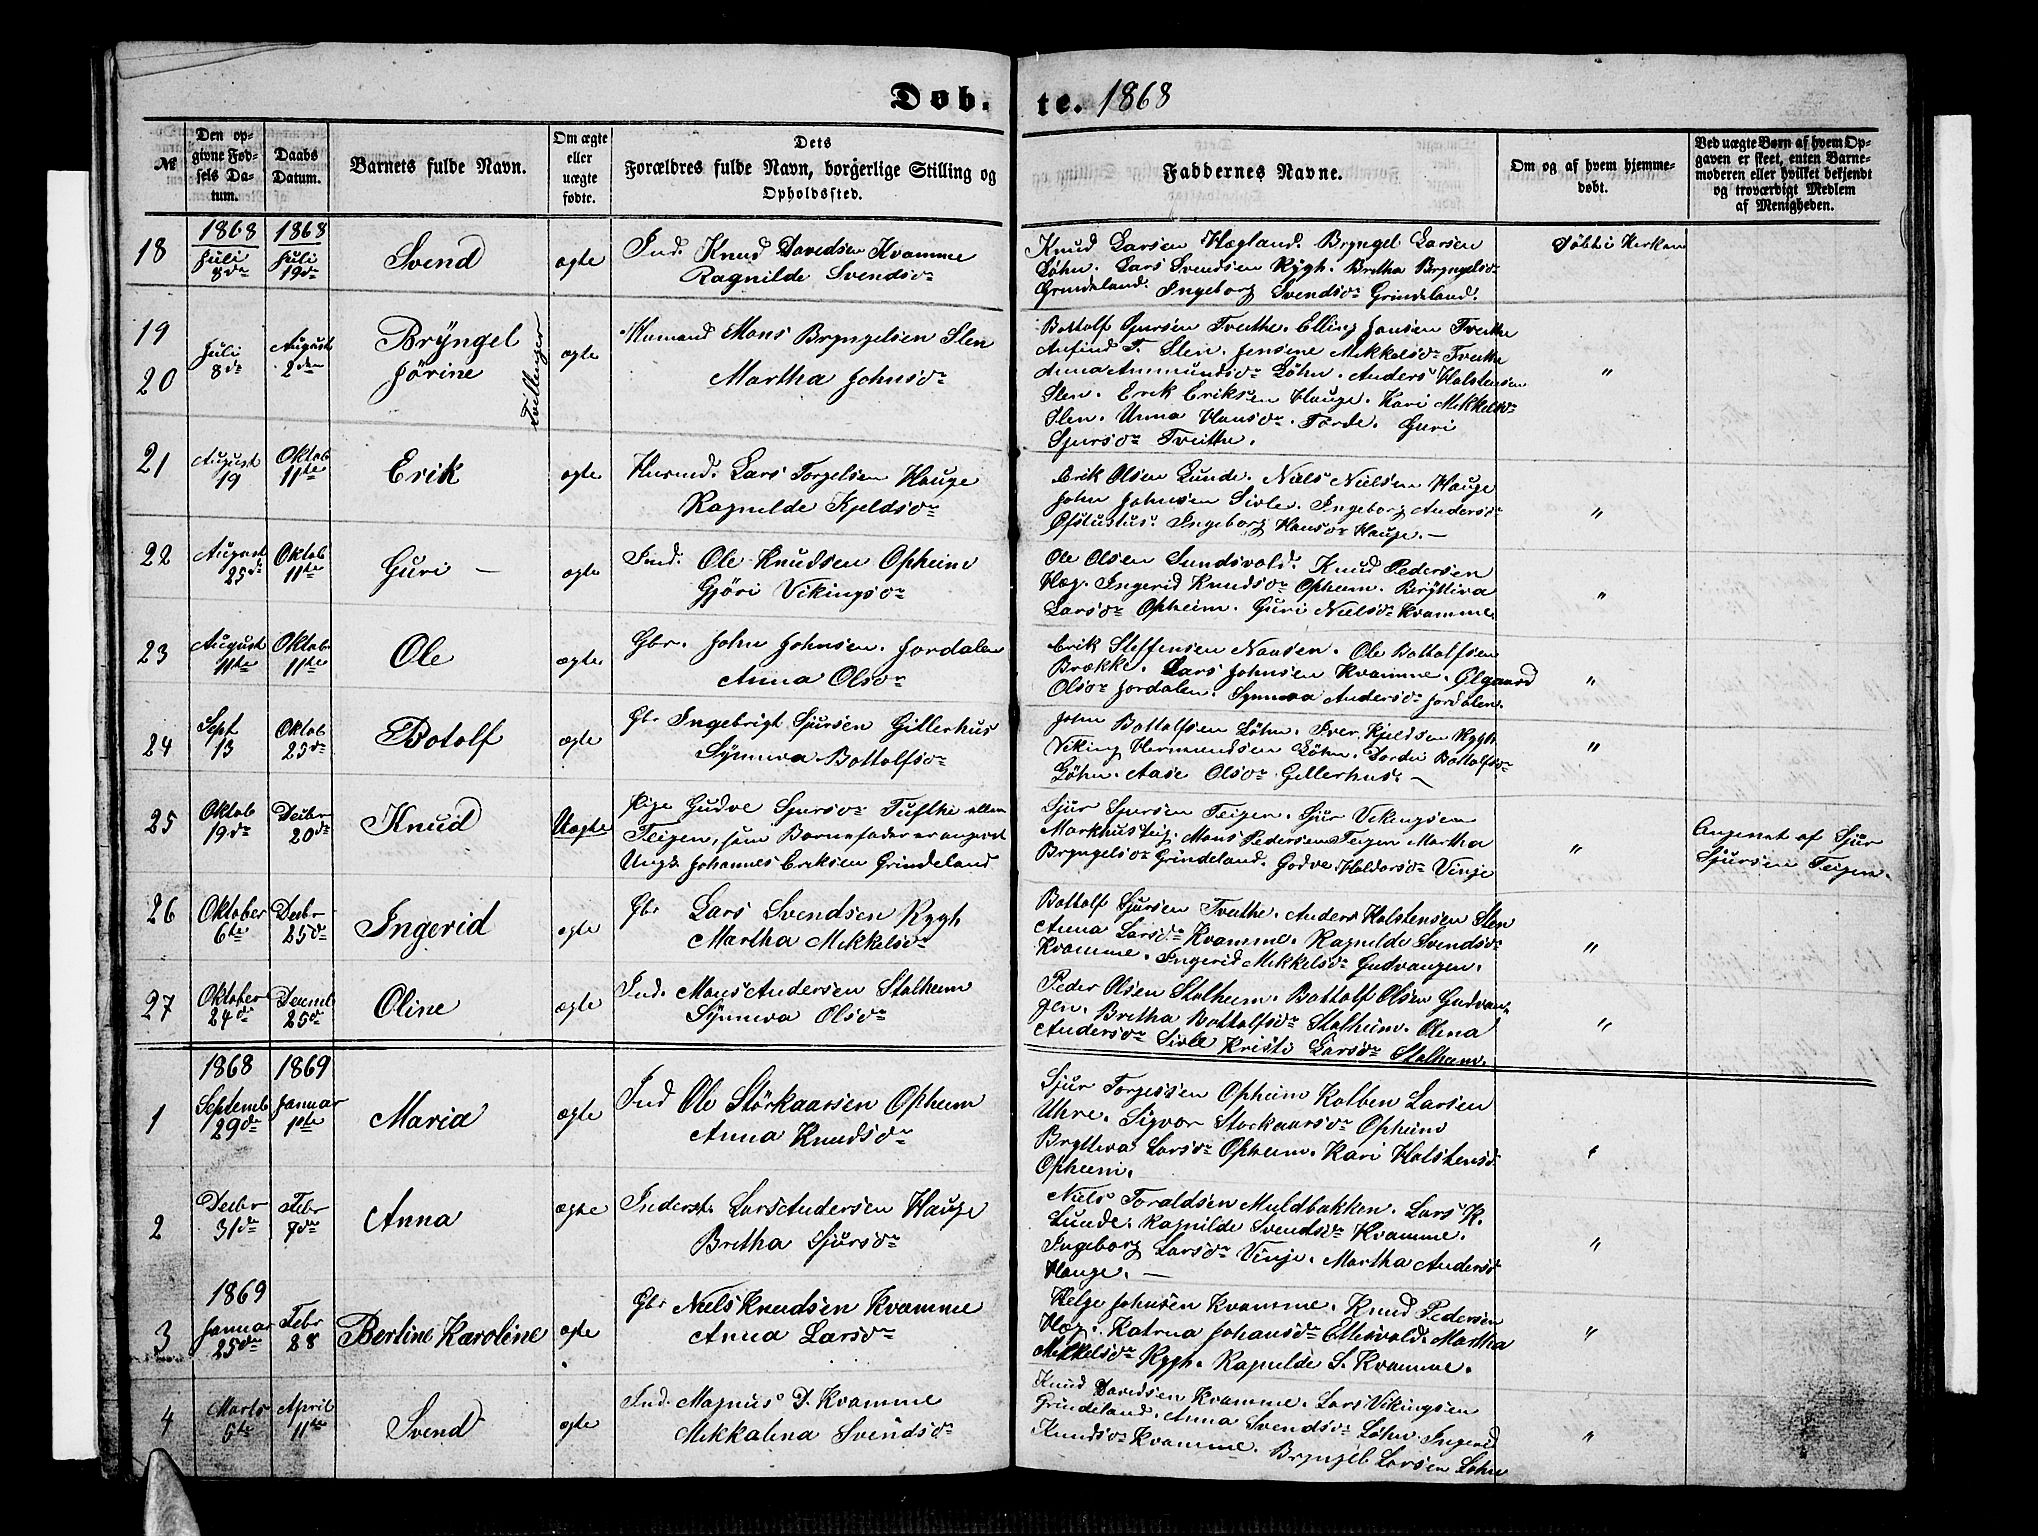 Døb. te. 1868
№
Den opgivne Fødsels Datum.
Daabs Datum.
Barnets fulde Navn.
Om ægte eller uægte fødte.
Dets Forældres fulde Navn, borgerlige Stilling og Opholdssted.
Faddernes Navne.
Om og af hvem hjemmedøbt.
Ved uægte Børn af hvem Opgaven er skeet, enten Barnemoderen eller hvilket bekjendt og troværdigt Medlem af Menigheden.
18
1868 Juli 8de
1868 Juli 19de
Svend
ægte
Ind. Knud Davidsen Kvamme
Ragnilde Svendsdr
Knud Larsen Hægland. Bryngel Larsen
Løhn. Lars Svendsen Rygh. Bretha Bryngelsdr
Grindeland. Ingeborg Svendsdr Grindeland.
Døbt i Kirken
19
20
Juli 8de
August 2den
Brÿngel
Jørine
Tvillinger
ægte
Husmand Mons Bryngelsen Slen
Martha Johnsdr
Bottolf Sjursen Tveithe. Elling Jonsen Tveithe
Anfind T. Slen. Jensene Mikkelsdr Tveithe
Anna Ammundsdr Løhn. Anders Holstensen
Slen. Erik Eriksen Hauge. Kari Mikkelsdr
Slen. Unna Hansdr Førde. Guri
Sjursdr Tveithe.
"
21
August 19
Oktob 11te
Erik
ægte
Husmd. Lars Torgelsen Hauge
Ragnilde Kjeldsdr
Erik Olsen Lunde. Niels Nielsen Hauge
John Johnsen Sivle. Ingeborg Andersdr
Ofstustus. Ingeborg Hansdr Hauge. —
"
22
August 25de
Oktob 11te
Guri —
ægte
Ind. Ole Knudsen Opheim
Gjøri Vikingsdr
Ole Olsen Sundsvold. Knud Pedersen
Hæg. Ingerid Knudsdr Opheim. Brÿttiva
Larsdr Opheim. Guri Nielsdr Kvamme.
"
23
August 11te
Oktob 11te
Ole
ægte
Gbr. John Johnsen. Jordalen
Anna Olsdr
Erik Steffensen Naasen. Ole Bottolfsen
Brække. Lars Johnsen Kvamme. Ølgaard
Olsdr Jordalen. Synneva Andersdr Jordalen.
"
24
Sept 13
Oktob 25de
Botolf
ægte
Gbr Ingebrigt Sjursen Gillerhus
Sÿnneva Bottolfsdr
John Bottolfsen Løhn. Iver Kjeldsen Rygh
Viking Hermundsen Løhn. Dordei Bottolfsdr
Løhn. Aase Olsdr Gillerhus. —
"
25
Oktob 19de
Decbr 20de
Knud
Uægte
Pige Gudve Sjursdr Tufthe eller
Teigen, som Barnefader er angivet
Ungk Johannes Eriksen Grindeland
Sjur Sjursen Teigen. Sjur Vikingsen
Markhusteig. Mons Pedersen Teigen Martha
Bryngelsdr Grindeland. Godve Haldorsdr Vinje
"
Angivet af Sjur
Sjursen Teigen.
26
Oktober 6te
Decbr 25de
Ingerid
ægte
Gbr Lars Svendsen Rygh
Martha Mikkelsdr
Bottolf Sjursen Tveithe. Anders Holstensen Slen
Anna Larsdr Kvamme. Ragnilde Svendsdr
Kvamme. Ingerid Mikkelsdr Gudvangen.
"
27
Oktober 24de
Decembr 25de
Oline
ægte
Ind. Mons Andersen Stalheim
Sÿnneva Olsdr
Peder Olsen Stalheim. Bottolf Olsen Gudvan-
gen. Bretha Bottolfsdr Stalheim. Olena
Andersdr Sivle Kristi Larsdr Stalheim.
"
1
1868 Septemb 29de
1869 Januar 1ste
Maria
ægte
Ind Ole Störkaarsen Opheim
Anna Knudsdr
Sjur Torgessen Opheim Kolben Larsen
Uhre. Sigvor Storkaarsdr Opheim
Bryttiva Larsdr Opheim. Kari Holstensdr
Opheim.
"
2
Decbr 31de
Febr 7de
Anna
ægte
Inderst. Lars Andersen Hauge
Bretha Sjursdr
Niels Toraldsen Muldbakken. Lars K.
Lunde. Ragnilde Svendsdr Kvamme.
Ingeborg Larsdr Vinje. Martha Andersdr
Hauge. —
"
3
1869 Januar 25de
Febr 28
Berline Karoline
ægte
Gbr Niels Knudsen Kvamme
Anna Larsdr
Helge Johnsen Kvamme. Knud Pedersen
Hæg. Katrina Johansdr Ettesvold. Martha
Mikkelsdr Rygh. Ragnilde S. Kvamme.
"
4
Marts 6te
April 11te
Svend
ægte
Ind. Magnus D. Kvamme
Mikkalina Svendsdr
Knud Davidsen Kvamme. Lars Vikingsen
Grindeland. Anna Svendsdr Løhn. Ingerid
Knudsdr Kvamme. Bryngel Larsen Løhn
"